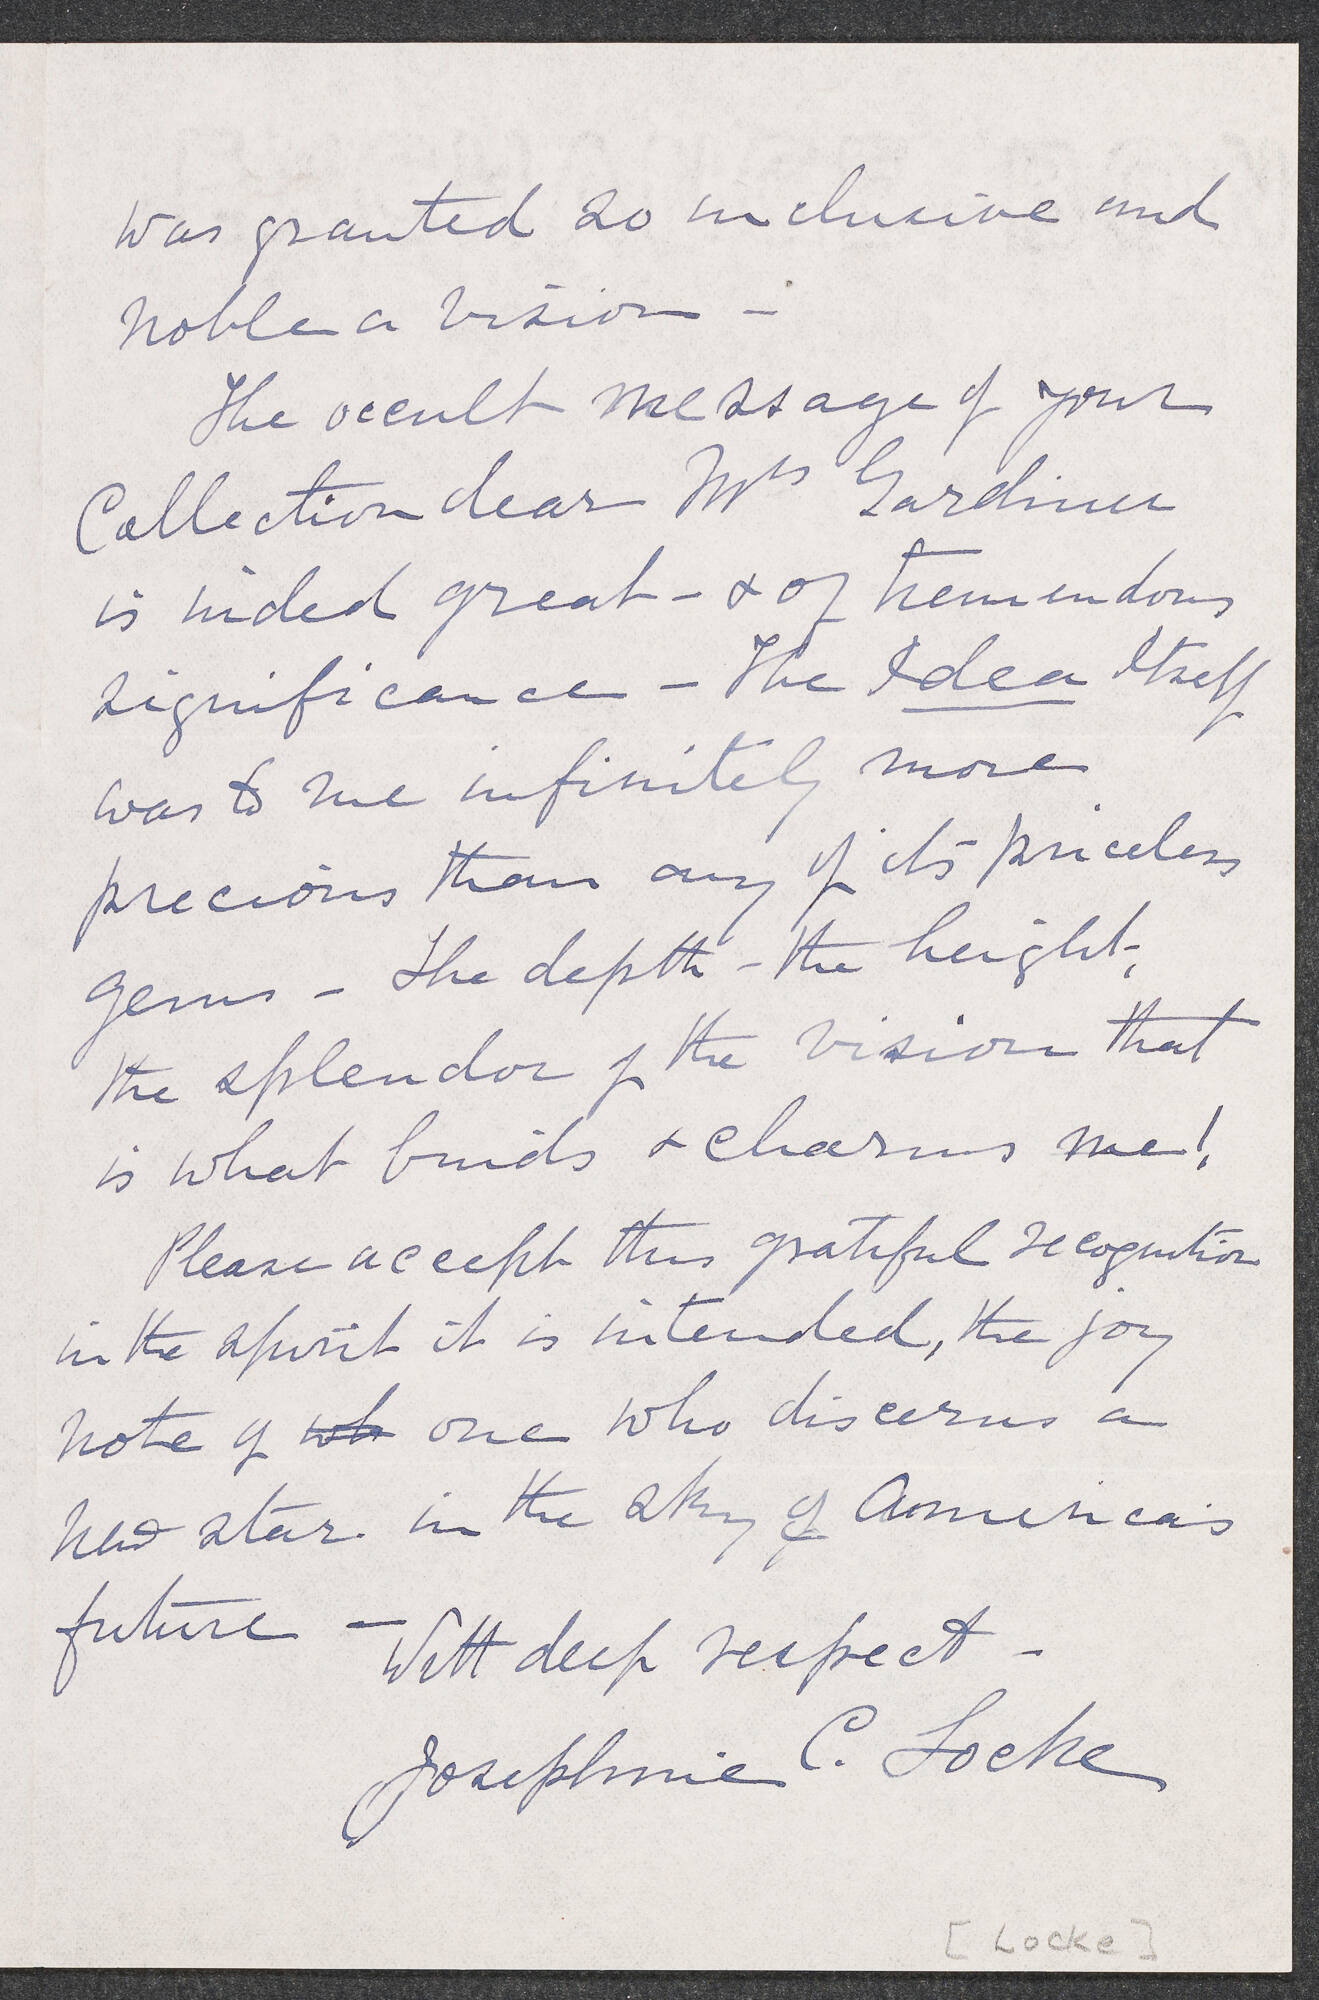 was granted so inclusive and
noble a vision -
The occult message of your
Collection dear Mrs Gardiner
is inded great - & of tremendous
significance - The Idea Itself
was to me infinitely more
precious than any of its priceless
gems - The depth - the height,
the splendor of the vision that
is what binds & charms me!
Please accept this grateful recognition
in the spirit it is intended, the joy
note of wh one who discerns a
new star in the sky of America's
future -
With deep respect -
Josephine C. Locke
[Locke]